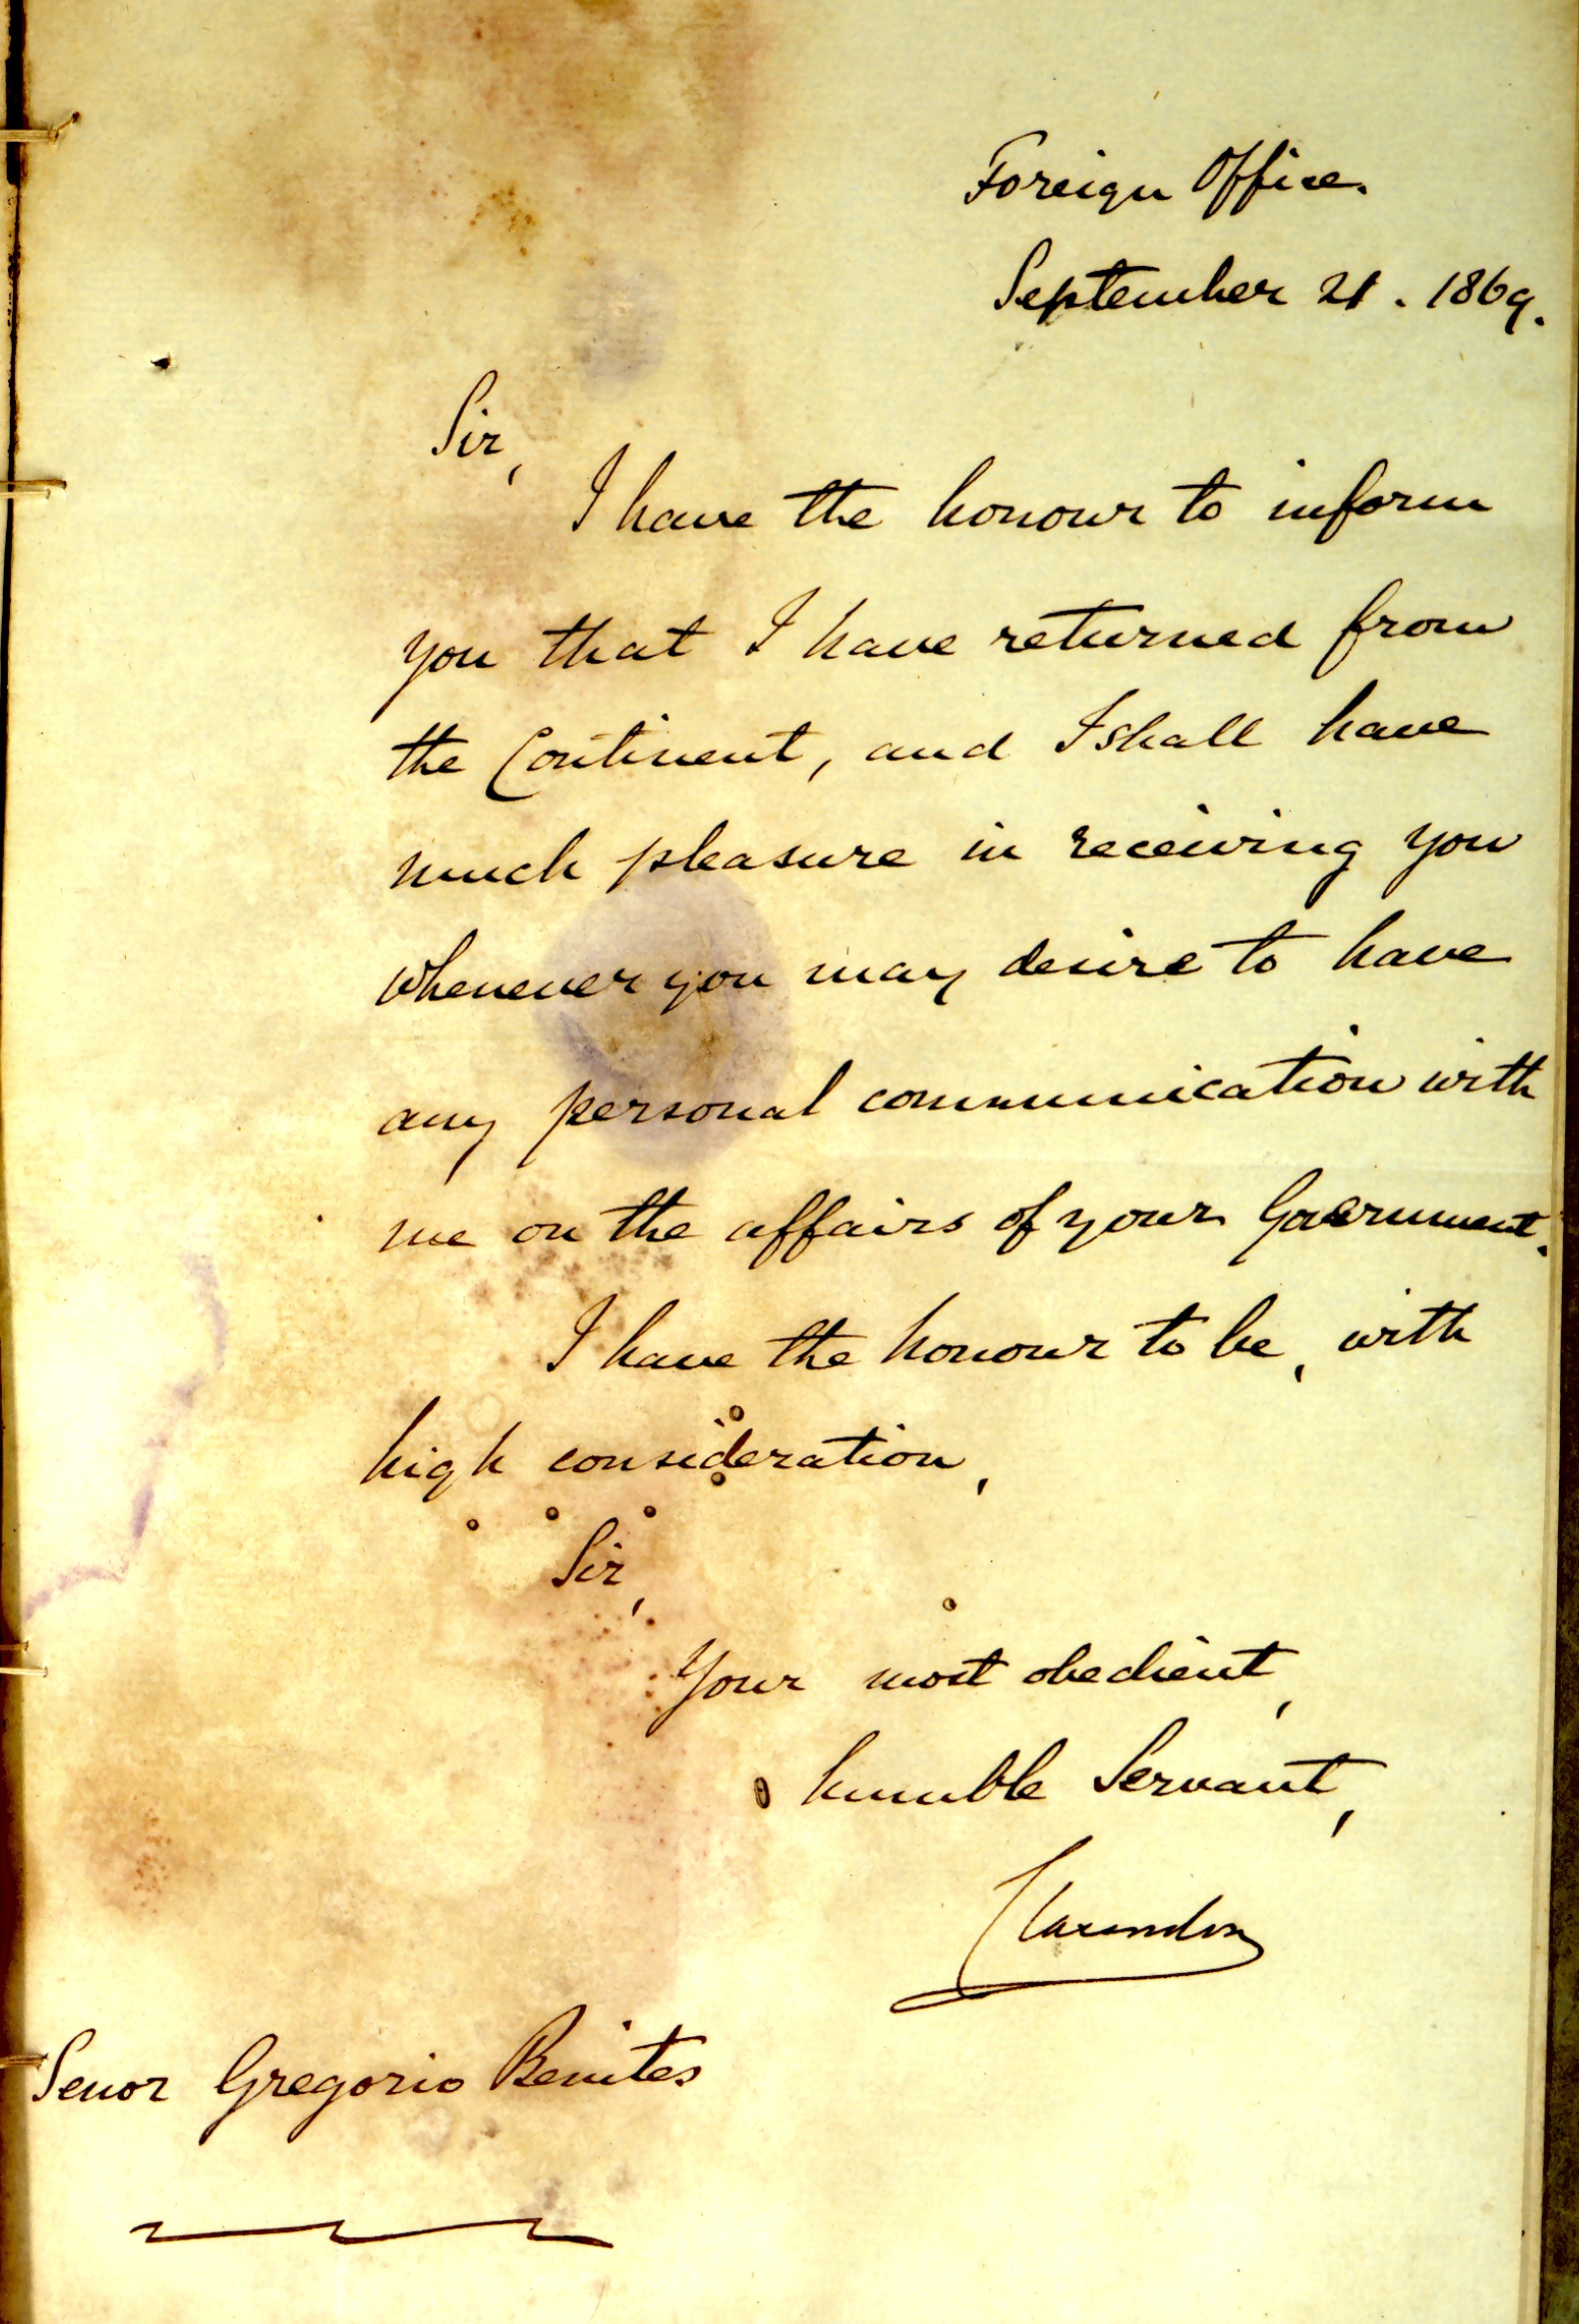 Foreign Office.
September 21. 1869.
Sir,
I have the honour to inform
you that I have returned from
the Continent, and I shall have
much pleasure in receiving you
whenever you may desire to have
any personal communication with
me on the affairs of your Government.
I have the honour to be, with
high consideration,
Sir,
Your most obedient,
humble Servant,
Clarendon
Senor Gregorio Benites